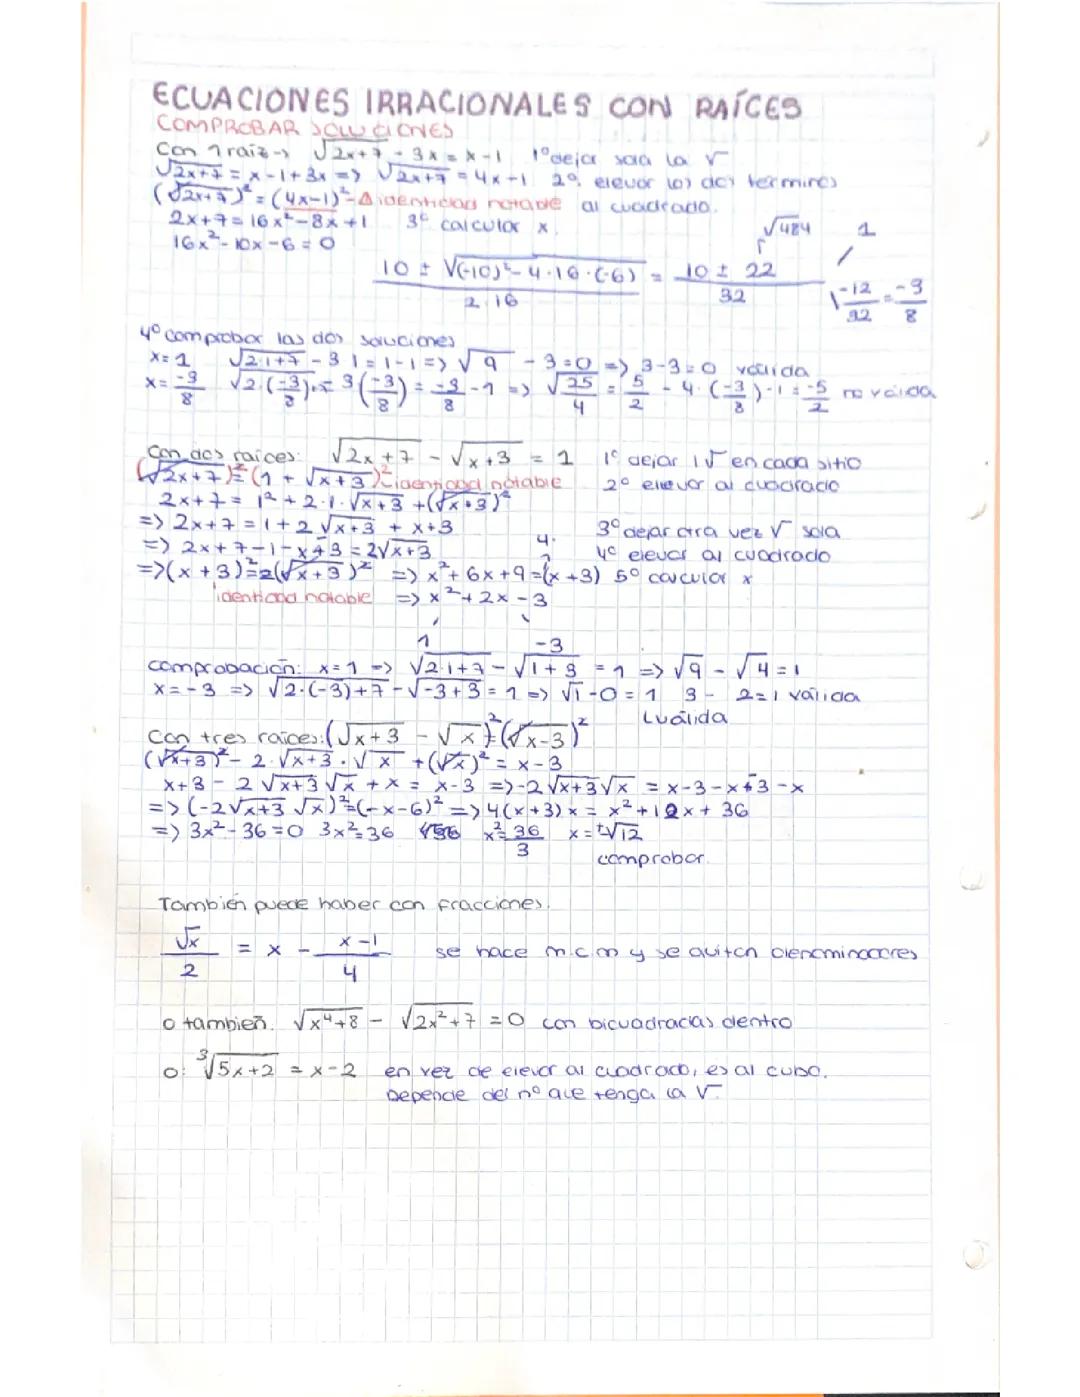 ECUACIONES IRRACIONALES CON RAÍCES
COMPROBAR SOLUCIONES
Con 1 raiz -> √2x+7 - 3x = x-1   1º dejar sola la √
√2x+7 = x-1+3x => √2x+7 = 4x-1   2º elevar los dos terminos
(√2x+7)² = (4x-1)² -Δ identidad notable   al cuadrado.
2x+7 = 16x²-8x+1   3º calcular x
16x²-10x-6=0
√484
10 ± √(-10)²-4·16·(-6) / 2·16 = 10 ± 22 / 32   1   -12/32 = -3/8
4º comprobar las dos soluciones
x=1   √2·1+7 - 3·1 = 1-1 => √9 - 3=0 => 3-3=0 válida
x= -3/8   √2·(-3/8)+7 = 3(-3/8) = -3/8 -1 => √25/4 = 5/2 - 4·(-3/8)-1 = -5/2 no valida
Con dos raices: √2x+7 - √x+3 = 1   1º dejar 1√ en cada sitio
(√2x+7)² = (1 + √x+3)² identidad notable   2º elevar al cuadrado
2x+7 = 1² + 2·1·√x+3 + (√x+3)²
=> 2x+7 = 1+2√x+3 + x+3   3º dejar otra vez √ sola
=> 2x+7-1-x+3 = 2√x+3   4º elevar al cuadrado
=> (x+3)² = 2(√x+3)² => x²+6x+9 = 4·(x+3)   5º calcular x
identidad notable => x²+2x-3
1   -3
comprobación: x=1 => √2·1+7 - √1+3 = 1 => √9 - √4 = 1
x=-3 => √2·(-3)+7 - √-3+3 = 1 => √1-0 = 1   3 - 2=1 válida
válida
Con tres raíces: (√x+3 - √x)² = (√x-3)²
(√x+3)² - 2·√x+3·√x + (√x)² = x-3
x+3 - 2√x+3√x + x = x-3 => -2√x+3√x = x-3-x+3-x
=> (-2√x+3 √x)² = (-x-6)² => 4(x+3)x = x²+12x+36
=> 3x²-36=0   3x²=36   x²= 36/3   x=±√12
comprobar.
También puede haber con fracciones.
√x/2 = x - x-1/4   se hace m.c.m y se quitan denominadores
o también. √x⁴+8 - √2x²+7 = 0 con bicuadradas dentro
o: ³√5x+2 = x-2   en vez de elevar al cuadrado, es al cubo.
Depende del nº que tenga la √.